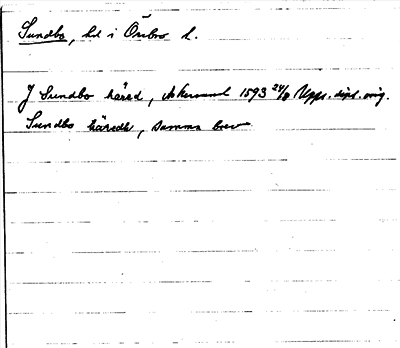 Sundbo, hd i Örebro l.
J Sundbo härad, Askersund 1593 24/8 Upps. dipl. orig.
Sundbo häredt, samma brev